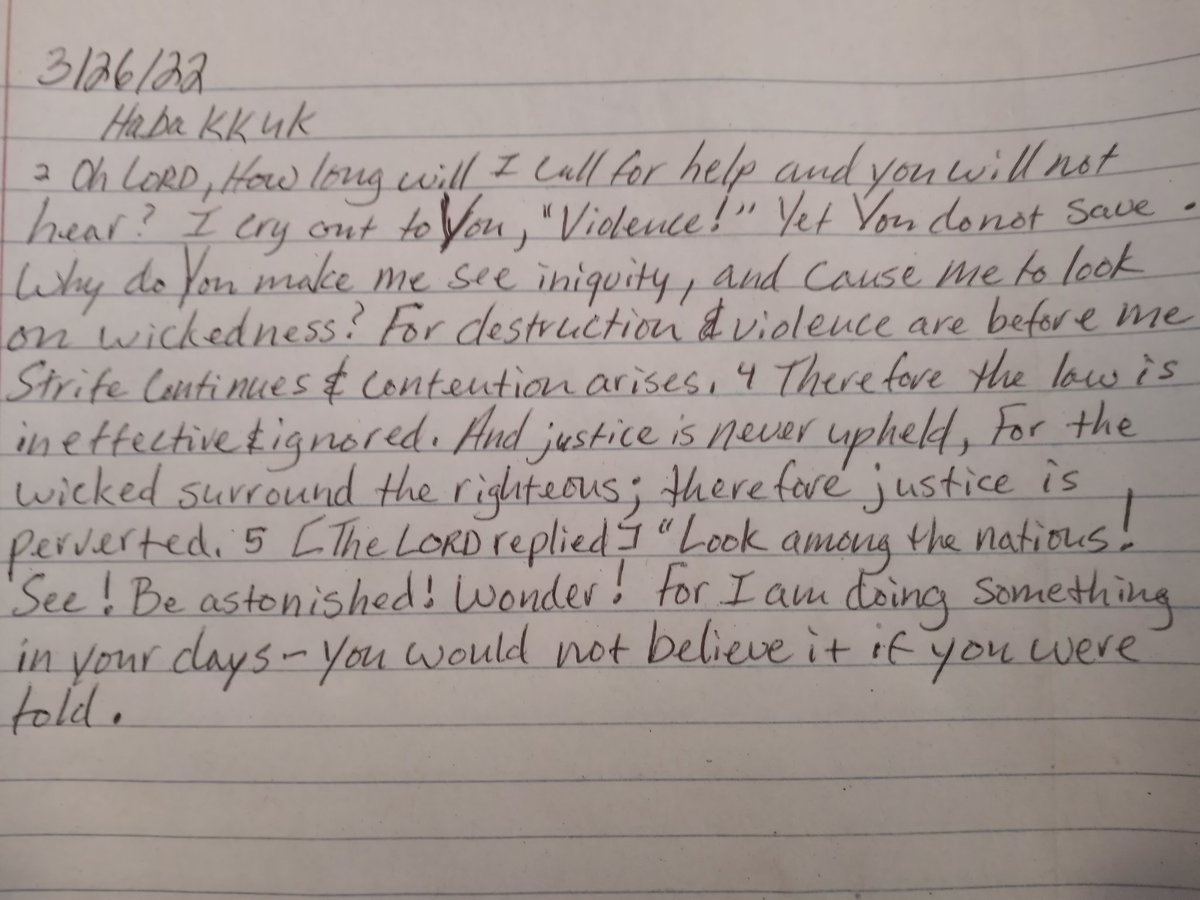 3/26/22
Habakkuk
2 Oh LORD, How long will I call for help and you will not
hear? I cry out to You, "Violence!" Yet You do not save.
Why do You make me see iniquity, and cause me to look
on wickedness? For destruction & violence are before me
Strife Continues & contention arises. 4 Therefore the law is
ineffective & ignored. And justice is never upheld, For the
wicked surround the righteous; therefore justice is
perverted. 5 [The LORD replied] "Look among the nations!
See! Be astonished! Wonder! For I am doing something
in your days - you would not believe it if you were
told.